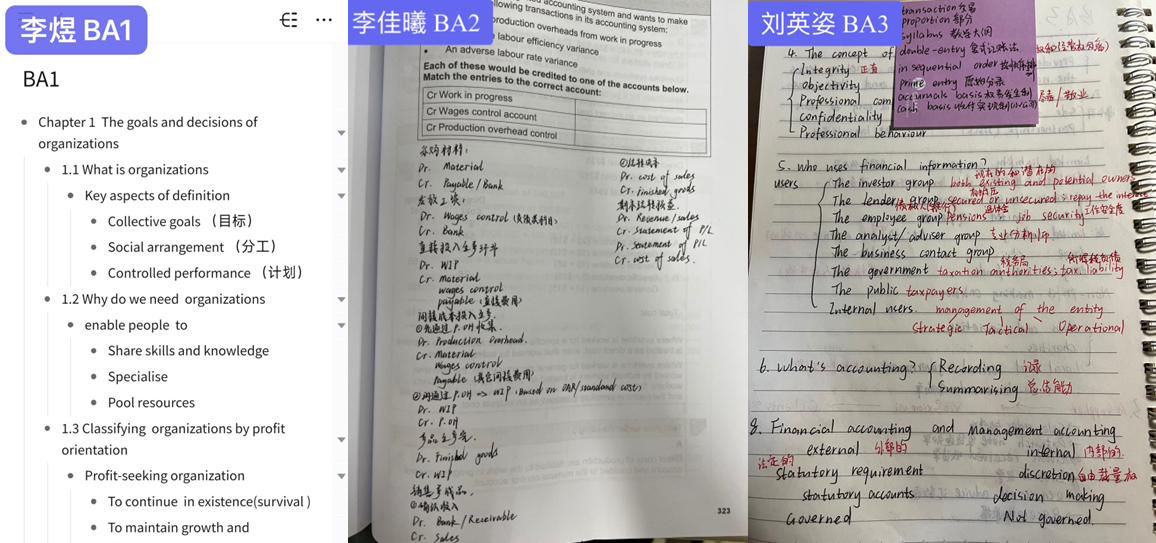 李煜 BA1
BA1
Chapter 1 The goals and decisions of
organizations
1.1 What is organizations
Key aspects of definition
Collective goals （目标）
Social arrangement （分工）
Controlled performance （计划）
1.2 Why do we need organizations
enable people to
Share skills and knowledge
Specialise
Pool resources
1.3 Classifying organizations by profit
orientation
Profit-seeking organization
To continue in existence(survival )
To maintain growth and
李佳曦 BA2
accounting system and wants to make
llowing transactions in its accounting system:
production overheads from work in progress
labour efficiency variance
An adverse labour rate variance
Each of these would be credited to one of the accounts below.
Match the entries to the correct account:
Cr Work in progress
Cr Wages control account
Cr Production overhead control
采购材料:
Dr. Material
Cr. Payable/Bank
发放工资:
Dr. Wages control
Cr. Bank
直接投入生产
Dr. WIP
Cr. Material
wages control
payable (直接费用)
间接成本投入生产.
①先通过 P.OH 收集.
Dr. Production Overhead.
Cr. Material
wages control
Payable (其它间接费用)
②再通过 P.OH => WIP (Based on OAR/standard cost)
Dr. WIP
Cr. P.OH
产品生产完.
Dr. Finished goods
Cr. WIP
销售产成品.
①确认收入
Dr. Bank/Receivable
Cr. Sales
②结转成本
Dr. cost of sales
Cr. Finished goods
期末结转损益
Dr. Revenue/sales
Cr. Statement of P/L
Dr. Statement of P/L
Cr. cost of sales.
323
刘英姿 BA3
transaction 交易
proportion 部分
syllabus 教学大纲
double-entry 复式记账法
in sequential order
prime entry 原始分录
accruals basis 权责发生制
cash basis 收付实现制
4. The concept of
Integrity 正直
objectivity
Professional com
confidentiality
Professional behaviour
5. who uses financial information?
users
现在的和潜在的
The investor group both existing and potential owners
The lender group secured or unsecured repay the interest
The employee group Pensions 退休金 job security 工作安全度
The analyst/adviser group 专业分析师
The business contact group
The government taxation authorities; tax liability
税务局
The public taxpayers
Internal users. management of the entity
Strategic Tactical Operational
6. What's accounting?
Recording 记录
Summarising 总结能力
8. Financial accounting and Management accounting
external 外部的
internal 内部的
法定的
statutory requirement
discretion 自由裁量权
statutory accounts
decision making
Governed
Not governed.